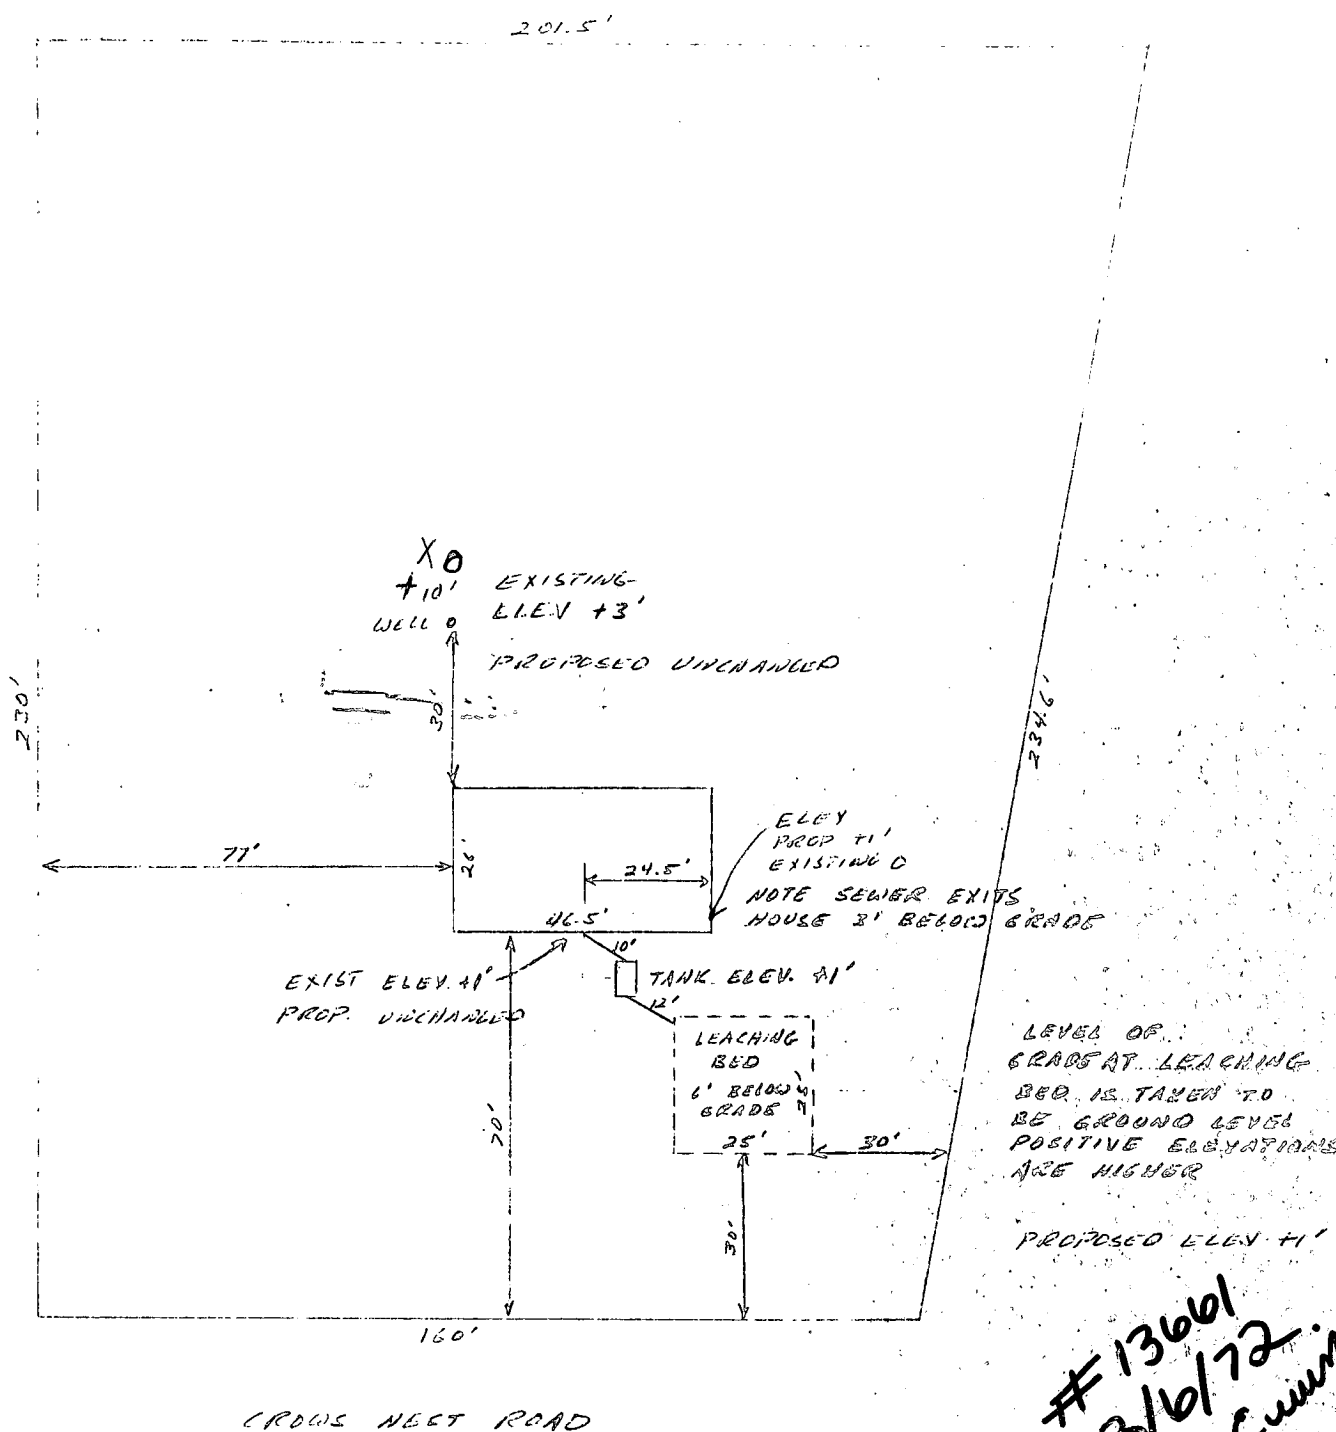 201.5'
X
+10'
EXISTING
ELEV +3'
WELL
PROPOSED UNCHANGED
30'
230'
234.6'
77'
26'
24.5'
46.5'
ELEV
PROP +1'
EXISTING 0
NOTE SEWER EXITS
HOUSE 3' BELOW GRADE
10'
EXIST ELEV. +1'
PROP. UNCHANGED
TANK ELEV. +1'
12'
LEACHING
BED
6' BELOW
GRADE
25'
25'
30'
70'
30'
LEVEL OF
GRADE AT LEACHING
BED IS TAKEN TO
BE GROUND LEVEL
POSITIVE ELEVATIONS
ARE HIGHER
PROPOSED ELEV +1'
160'
# 13661
3/6/72
CROWS NEST ROAD